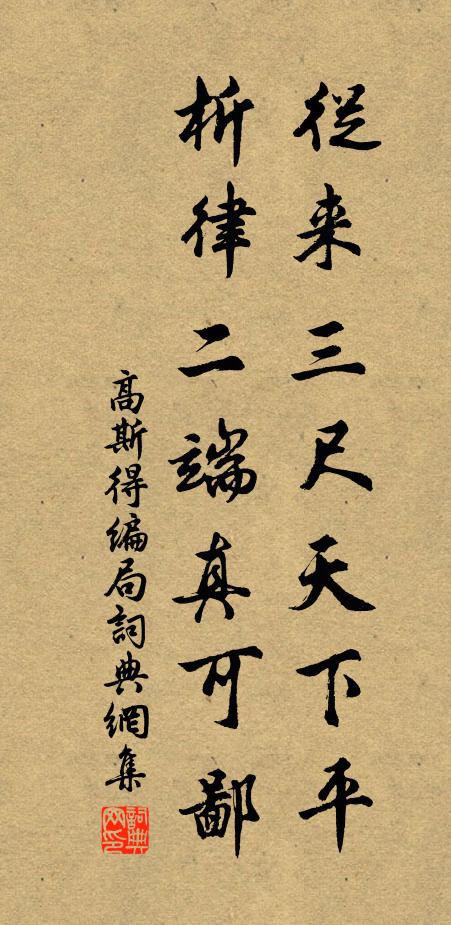 從来三尺天下平
析律二端真可鄙
高斯得編局詞典網集
詞典
网印